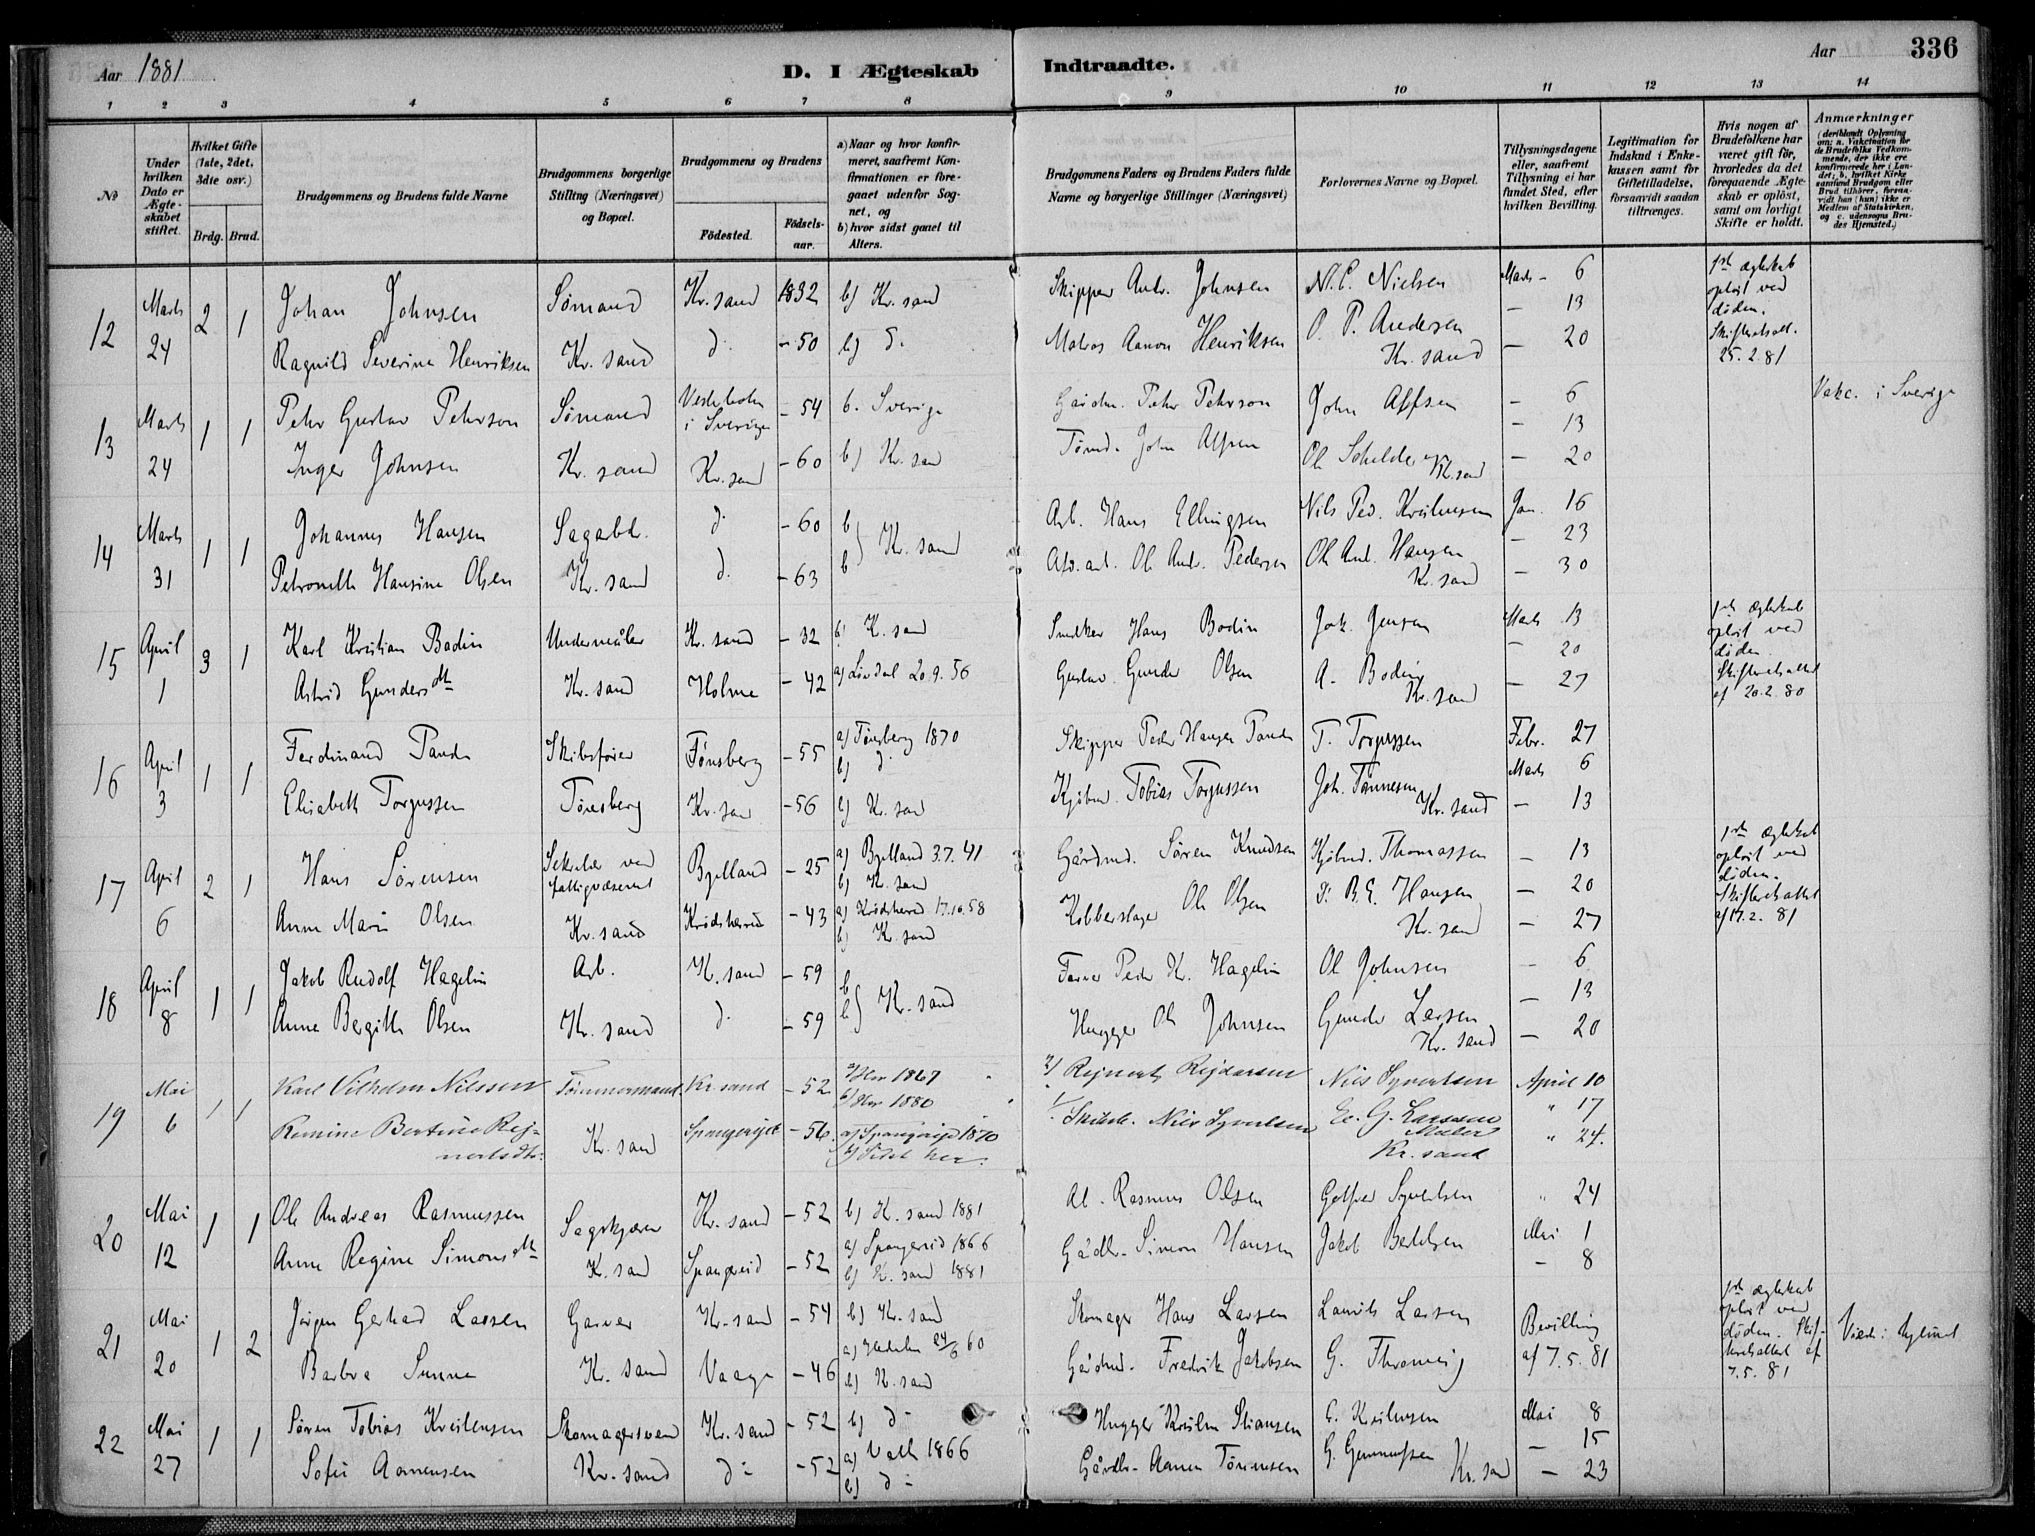 Aar 1881
D. I Ægteskab Indtraadte.
Aar
336
1 2 3 4 5 6 7 8 9 10 11 12 13 14
No
Under hvilken Dato er Ægteskabet stiftet.
Hvilket Gifte (1ste, 2det, 3die osv.)
Brdg. Brud.
Brudgommens og Brudens fulde Navne
Brudgommens borgerlige Stilling (Næringsvei) og Bopæl.
Brudgommens og Brudens
Födested.
Födsels-aar.
a) Naar og hvor konfirmeret, saafremt Konfirmationen er foregaaet udenfor Sognet, og
b) hvor sidst gaaet til Alters.
Brudgommens Faders og Brudens Faders fulde Navne og borgerlige Stillinger (Næringsvei)
Forlovernes Navne og Bopæl.
Tillysningsdagene eller, saafremt Tillysning ei har fundet Sted, efter hvilken Bevilling.
Legitimation for Indskud i Enkekassen samt for Giftetilladelse, forsaavidt saadan tiltrænges.
Hvis nogen af Brudefolkene har været gift för, hvorledes da det foregaaende Ægteskab er oplöst, samt om lovligt Skifte er holdt.
Anmærkninger
(deriblandt Oplysning om: a. Vakcination for de Brudefolks Vedkommende, der ikke ere konfirmerede her i Landet; b. hvilket Kirkesamfund Brudgom eller Brud tilhörer, forsaavidt han (hun) ikke er Medlem af Statskirken, og c. udensogns Brudes Hjemsted.)
12 Marts 24 2 1 Johan Johnsen Sømand Kr.sand 1832 b) Kr.sand Skipper Andr. Johnsen N. C. Nielsen Marts - 6
- 13
Ragnild Severine Henriksen Kr.sand do - 50 b) do Matros Aanon Henriksen O. P. Andersen Kr.sand - 20
1ste ægteskab opløst ved døden. Skifteattest. 25.2.81
13 Marts 24 1 1 Pehr Gustav Pehrson Sømand i Sverige - 54 b. Sverige Pehr Pehrson John - 6
- 13
Inger Johnsen Kr.sand Kr.sand - 60 b) Kr.sand Tømd. John Kr.sand - 20
Vakc. i Sverige
14 Marts 31 1 1 Johannes Hansen Sagarb. do - 60 b Arb. Hans Ellingsen Nils Ped. Kristensen Jan. 16
b } Kr.sand - 23
Petronelle Hansine Olsen Kr.sand do - 63 Ole Andr. Pedersen Ole And. Hansen Kr.sand - 30
15 April 1 3 1 Karl Kristian Bodin Undermåler Kr.sand - 32 b) Kr.sand Snedker Hans Bodin Jak. Jensen Marts 13
20
Astrid Gundersdtr Kr.sand Holme - 42 a) 20.9.56 Gustav Gunder Olsen A. Boding Kr.sand - 27
1ste ægteskab opløst ved døden. Skifteattest af 20.2.80
16 April 3 1 1 Ferdinand Pande Skibsfører Tønsberg - 55 a) Tønsberg 1870 b) do Skipper Peder Hansen Pande T. Torgussen Febr. 27
Marts 6
Elisabeth Torgussen Tønsberg Kr.sand - 56 b) Kr.sand Kjøbmd. Tobias Torgussen Joh. Tønnesen Kr.sand - 13
17 April 6 2 1 Hans Sørensen Sekretær ved fattigvæsenet Bjelland - 25 a) Bjelland 3.7.41 b) Kr.sand Gårdmd. Søren Knudsen Kjøbmd. Thomassen - 13
- 20
Anne Marie Olsen Kr.sand Krødsherred - 43 a) Krødsherred 17.10.58 b) Kr.sand Kobberslager Ole Olsen B. E. Hansen Kr.sand - 27
1ste ægteskab opløst ved døden. Skifteattest af 17.2.81
18 April 8 1 1 Jakob Rudolf Hagelin Arb. Kr.sand - 59 b Farver Peder K. Hagelin Ole Johnsen - 6
b } Kr.sand - 13
Anne Bergitte Olsen Kr.sand do - 59 Hugger Ole Johnsen Gunder Larsen Kr.sand - 20
19 Mai 6 1 1 Karl Vilhelm Nilssen Tømmermand Kr.sand - 52 a) Her 1867 b) Her 1880 2/ Rejnert Rejdarsen Niels Syvertsen April 10
" 17
Remine Bertine Rejnertsdtr. Kr.sand Spangereid - 56. a) Spangereid 1870 b) Sidst her. 1/ Niels Syvertsen G. Larssen Maler Kr.sand " 24.
20 Mai 12 1 1 Ole Andreas Rasmussen Sagskjærer Kr.sand - 52 b) Kr.sand 1881 Rasmus Olsen Syvertsen " 24
Mai 1
Anne Regine Simonsdtr Kr.sand Spangereid - 52 a) Spangereid 1866 b) Kr.sand 1881 Gådbr. Simon Hansen Jakob Bertelsen - 8
21 Mai 20 1 2 Jørgen Gerhard Larsen Garver Kr.sand - 54 b) Kr.sand Skomager Hans Larsen Laurits Larsen Bevilling af 7.5.81
Barbra Sunne Kr.sand Vaage - 46 a) 24/6 60 b) Kr.sand Gårdmd. Fredrik Jakobsen G.
1ste ægteskab opløst ved døden. Skifteattest af 7.5.81
Viede:
22 Mai 27 1 1 Søren Tobias Kristensen Skomagersvend Kr.sand - 52 b) do Hugger Stiansen Kristensen Mai 8
- 15
Sofie Aanensen Kr.sand do - 52 a) 1866 b) do Gårdbr. Aanen Tønnesen G. Gunnufsen Kr.sand - 23